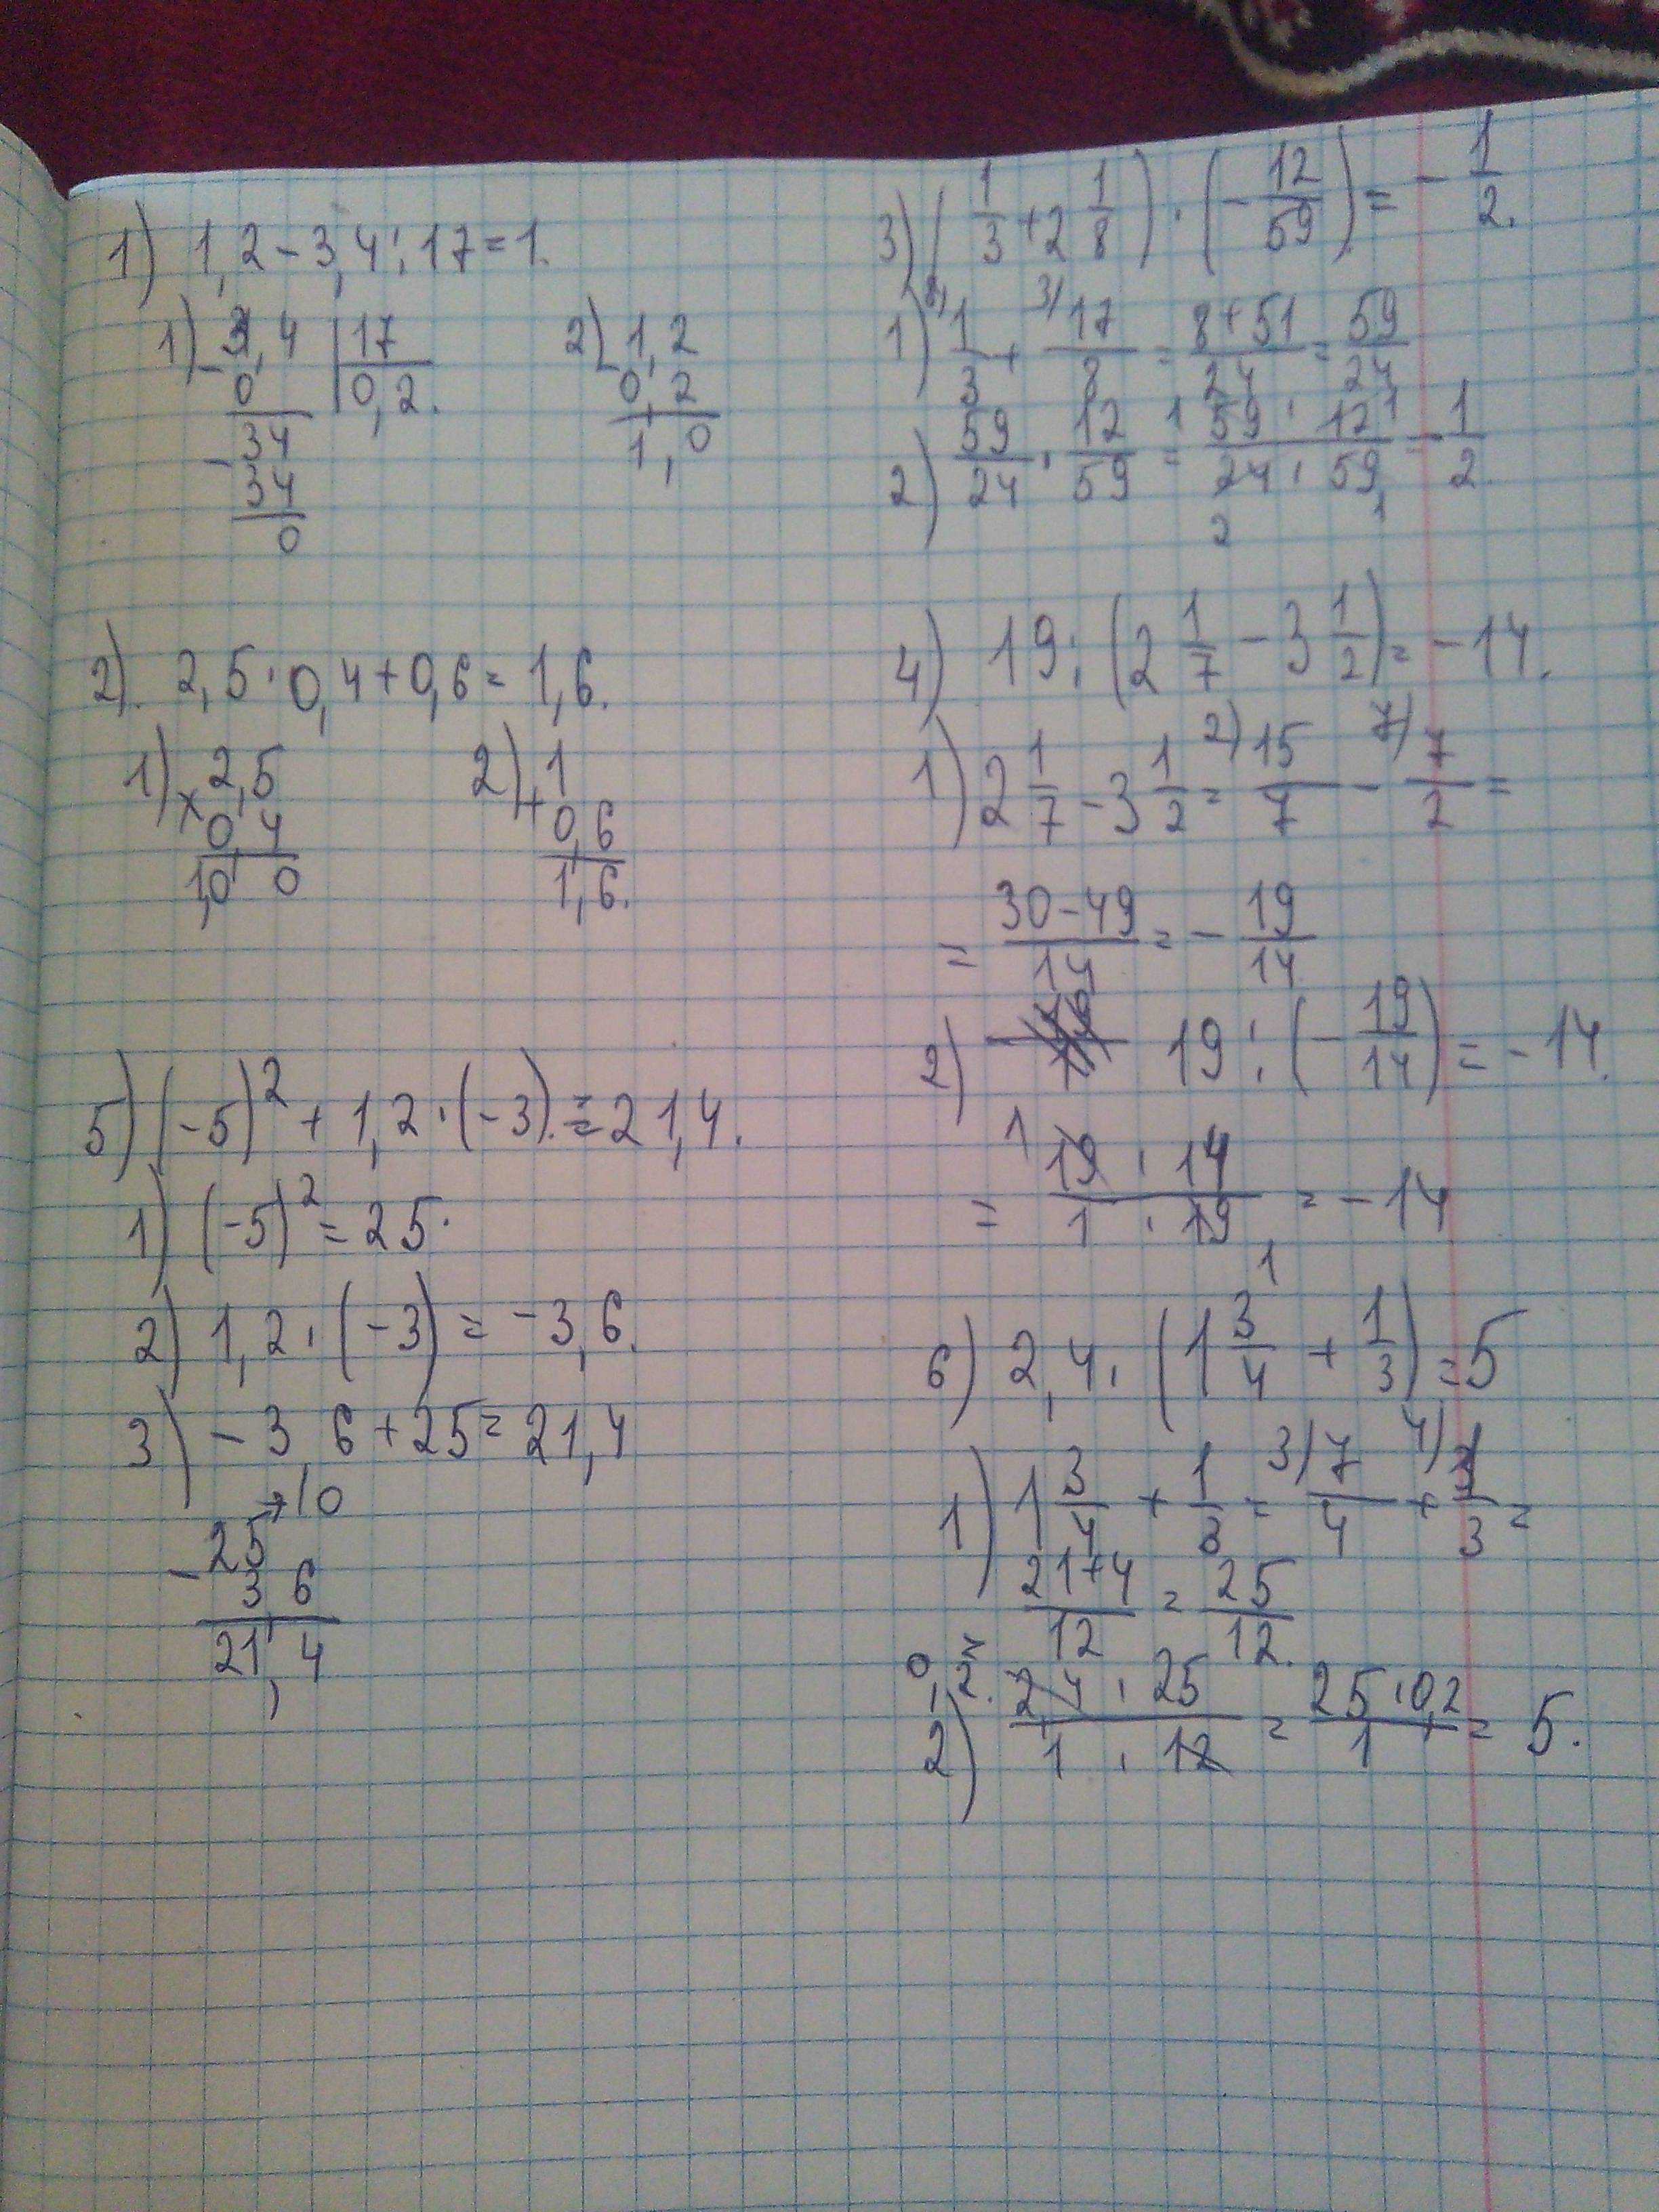 1) 1,2 - 3,4 : 17 = 1.
1) 3,4 | 17
- 0 | 0,2.
- 34
34
0
2) - 1,2
0,2
1,0
2). 2,5 · 0,4 + 0,6 = 1,6.
1) 2,5
× 0,4
1,0 0
2) + 1
0,6
1,6.
5) (-5)² + 1,2 · (-3) = 21,4.
1) (-5)² = 25.
2) 1,2 · (-3) = -3,6.
3) -3,6 + 25 = 21,4
→10
- 25
3 6
21,4
3) (1/3 + 2 1/8) · (- 12/59) = - 1/2.
1) 8) 1/3 + 3) 17/8 = 8+51/24 = 59/24
2) 59/24 · 12/59 = 1 59 · 12 1/24 · 59 = - 1/2
2 1
4) 19 : (2 1/7 - 3 1/2) = -14.
1) 2 1/7 - 3 1/2 = 2) 15/7 - 7) 7/2 =
= 30-49/14 = - 19/14
2) 19 : (- 19/14) = -14.
= 1 19 · 14/1 · 19 = -14
1
6) 2,4 · (1 3/4 + 1/3) = 5
1) 1 3/4 + 1/3 = 3) 7/4 + 4) 1/3 =
= 21+4/12 = 25/12.
0,2.
2) 2,4 · 25/1 · 12 = 25 · 0,2/1 = 5.